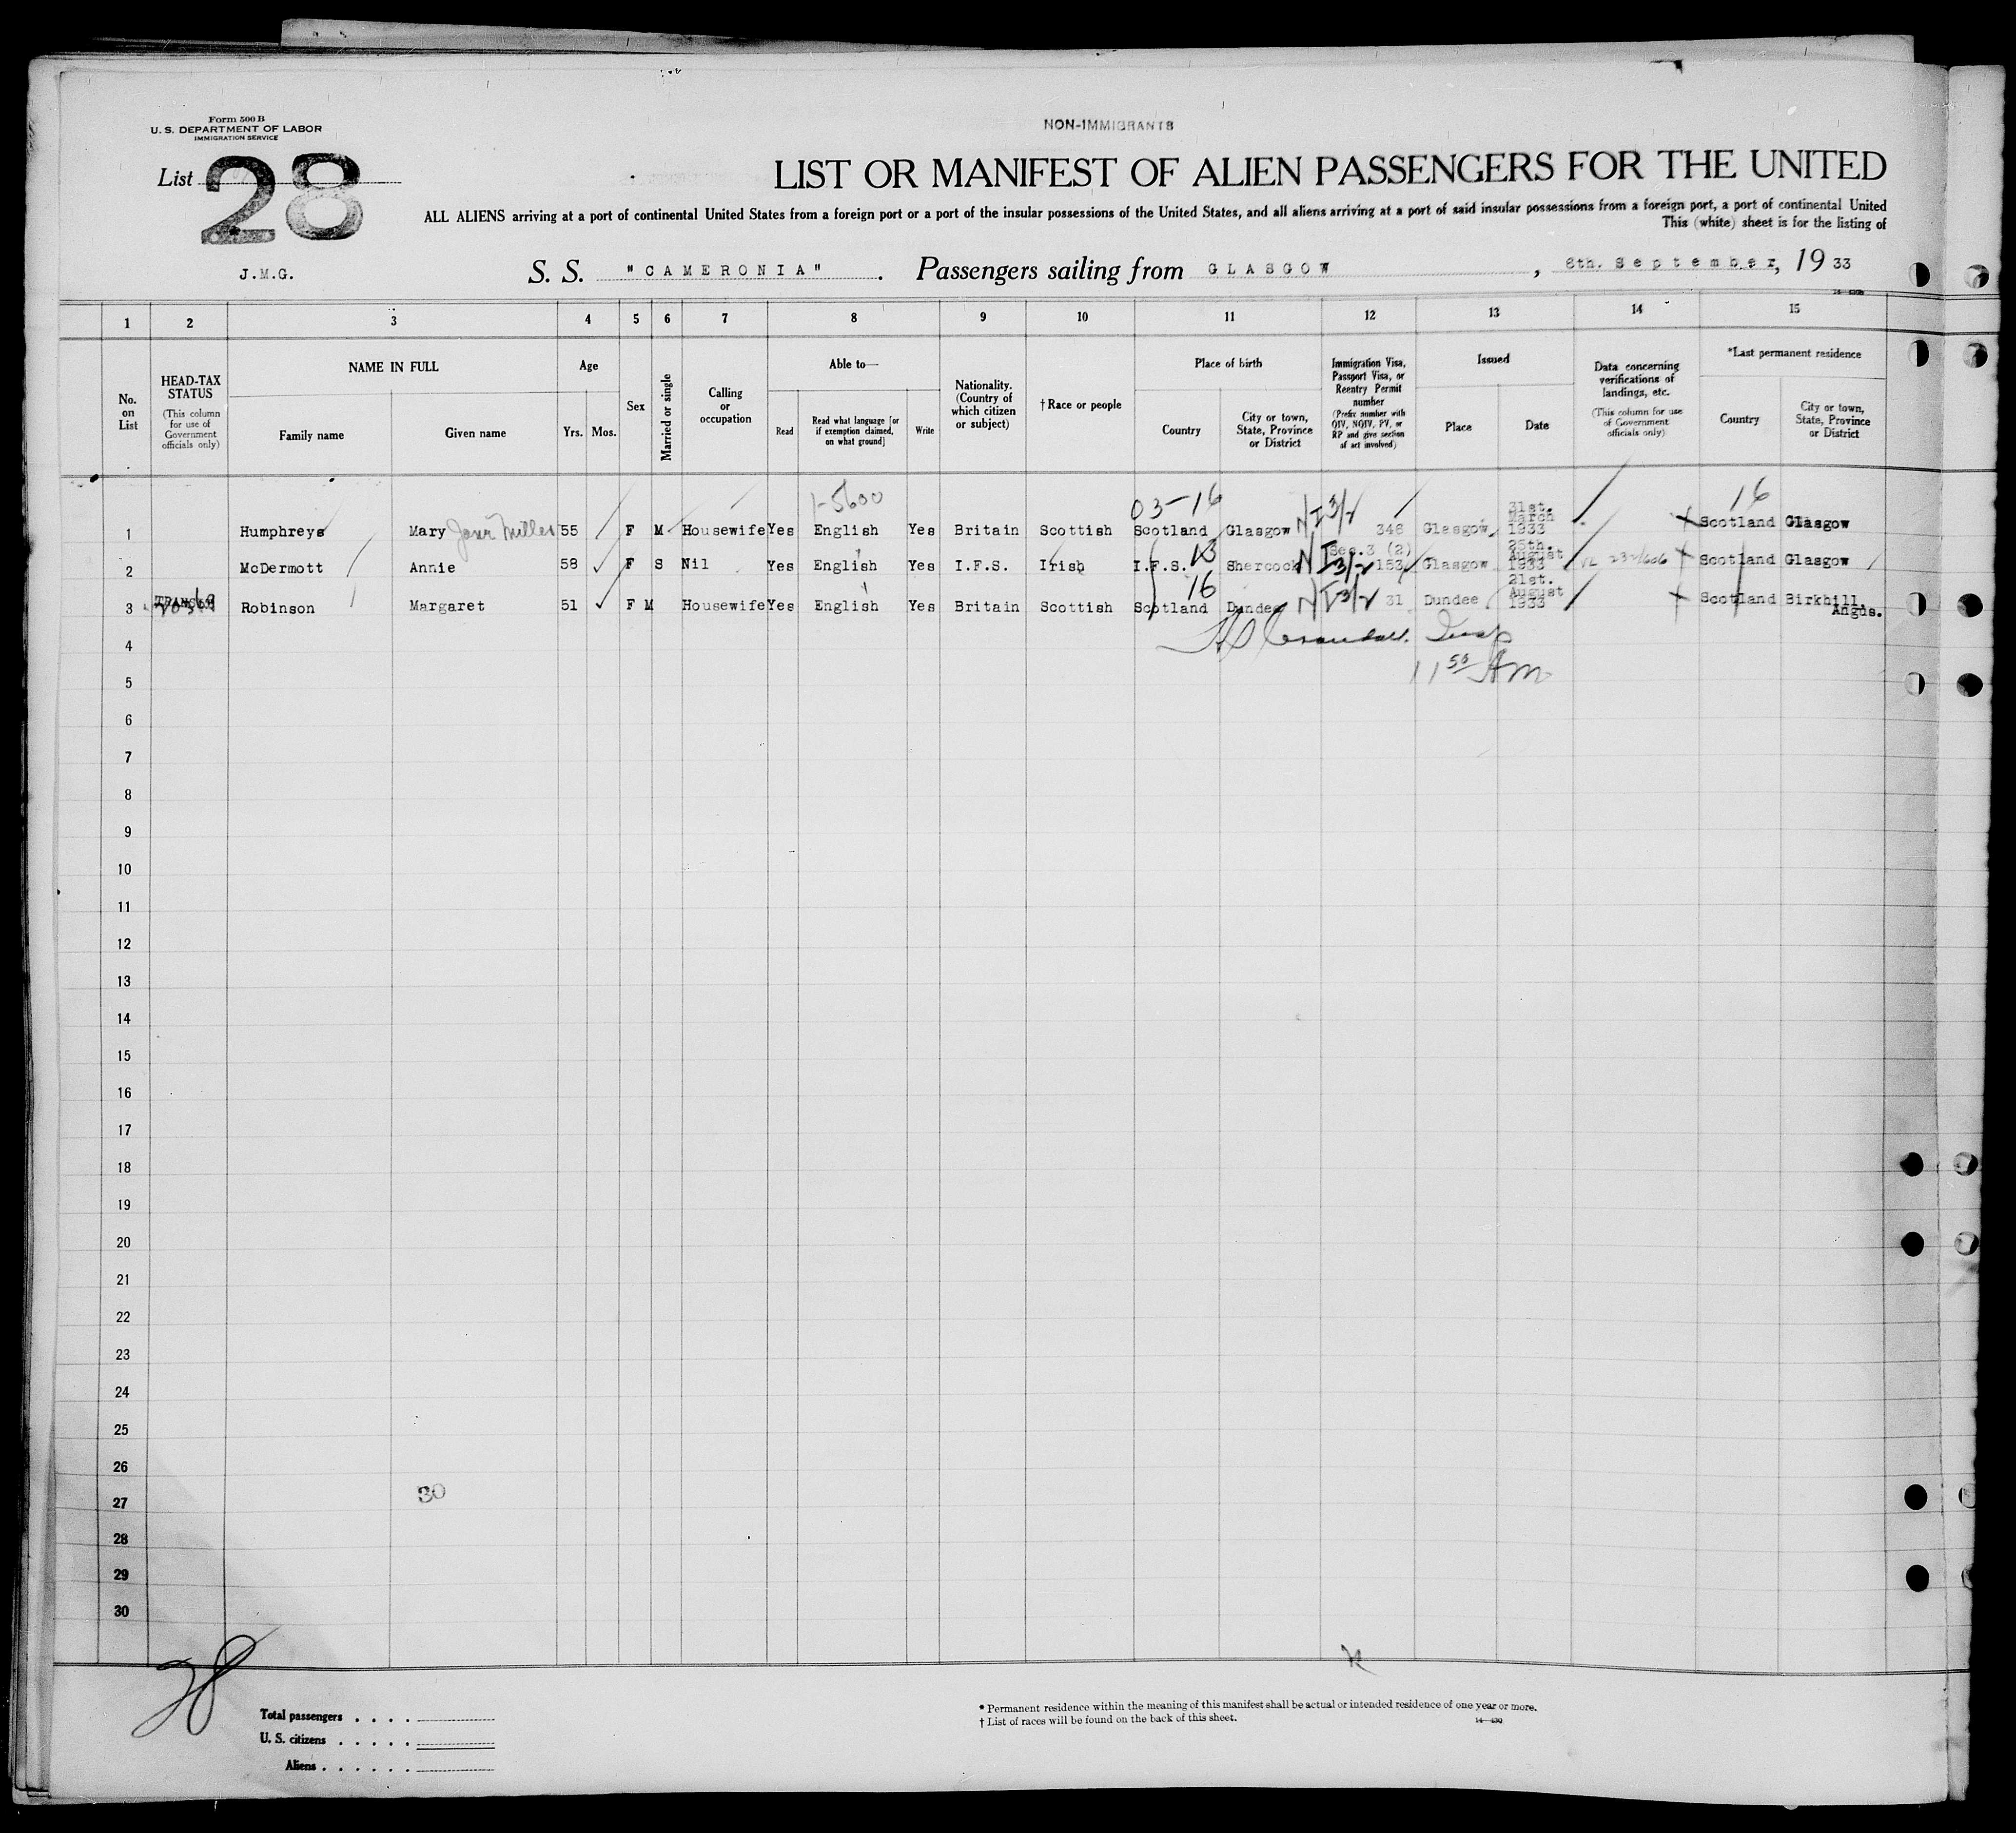 Form 500 B
U. S. DEPARTMENT OF LABOR
IMMIGRATION SERVICE
NON-IMMIGRANTS
List 28
LIST OR MANIFEST OF ALIEN PASSENGERS FOR THE UNITED
ALL ALIENS arriving at a port of continental United States from a foreign port or a port of the insular possessions of the United States, and all aliens arriving at a port of said insular possessions from a foreign port, a port of continental United
This (white) sheet is for the listing of
J.M.G.
S. S. "CAMERONIA" . Passengers sailing from GLASGOW , 6th. September, 19 33
1 2 3 4 5 6 7 8 9 10 11 12 13 14 15
No. on List
HEAD-TAX STATUS
(This column for use of Government officials only)
NAME IN FULL
Family name Given name
Age
Yrs. Mos.
Sex
Married or single
Calling or occupation
Able to—
Read
Read what language [or if exemption claimed, on what ground]
Write
Nationality. (Country of which citizen or subject)
† Race or people
Place of birth
Country
City or town, State, Province or District
Immigration Visa, Passport Visa, or Reentry Permit number
(Prefix number with QIV, NQIV, PV, or RP and give section of act involved)
Issued
Place Date
Data concerning verifications of landings, etc.
(This column for use of Government officials only)
*Last permanent residence
Country
City or town, State, Province or District
1-5600 03-16 16
1 Humphreys Mary Jane Miller 55 F M Housewife Yes English Yes Britain Scottish Scotland Glasgow N I 3/2 348 Glasgow 31st. March 1933 Scotland Glasgow
2 McDermott Annie 58 F S Nil Yes English Yes I.F.S. Irish I.F.S. 13 Shercock N I 3/2 Sec.3 (2) 153 Glasgow 25th. August 1933 232/606 Scotland Glasgow
3 TRANSIT Robinson Margaret 51 F M Housewife Yes English Yes Britain Scottish 16 Scotland Dundee N I 3/2 31 Dundee 21st. August 1933 Scotland Birkhill, Angus.
4 Crandall. Insp
5 11 50 AM
6
7
8
9
10
11
12
13
14
15
16
17
18
19
20
21
22
23
24
25
26
27 30
28
29
30
28
Total passengers . . . .
U. S. citizens . . . . .
Aliens . . . . . .
* Permanent residence within the meaning of this manifest shall be actual or intended residence of one year or more.
† List of races will be found on the back of this sheet.